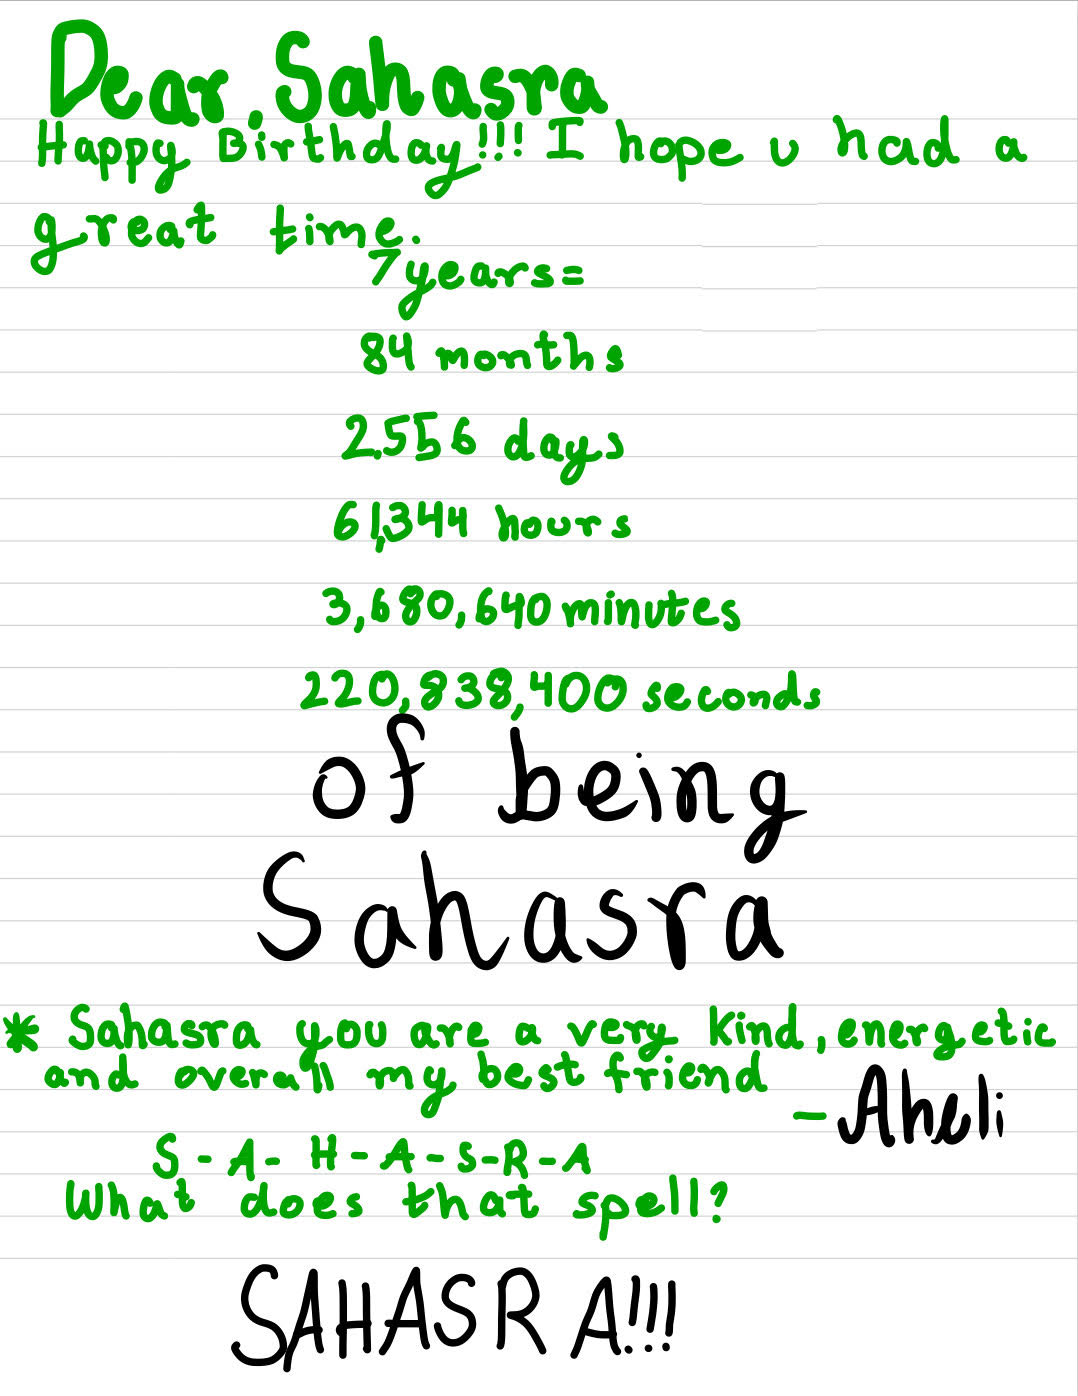 Dear, Sahasra
Happy Birthday!!! I hope u had a
great time.
7 years=
84 months
2.556 days
61,344 hours
3,680,640 minutes
220,838,400 seconds
of being
Sahasra
* Sahasra you are a very kind, energetic
and overall my best friend
- Aheli
S-A-H-A-S-R-A
What does that spell?
SAHASRA!!!